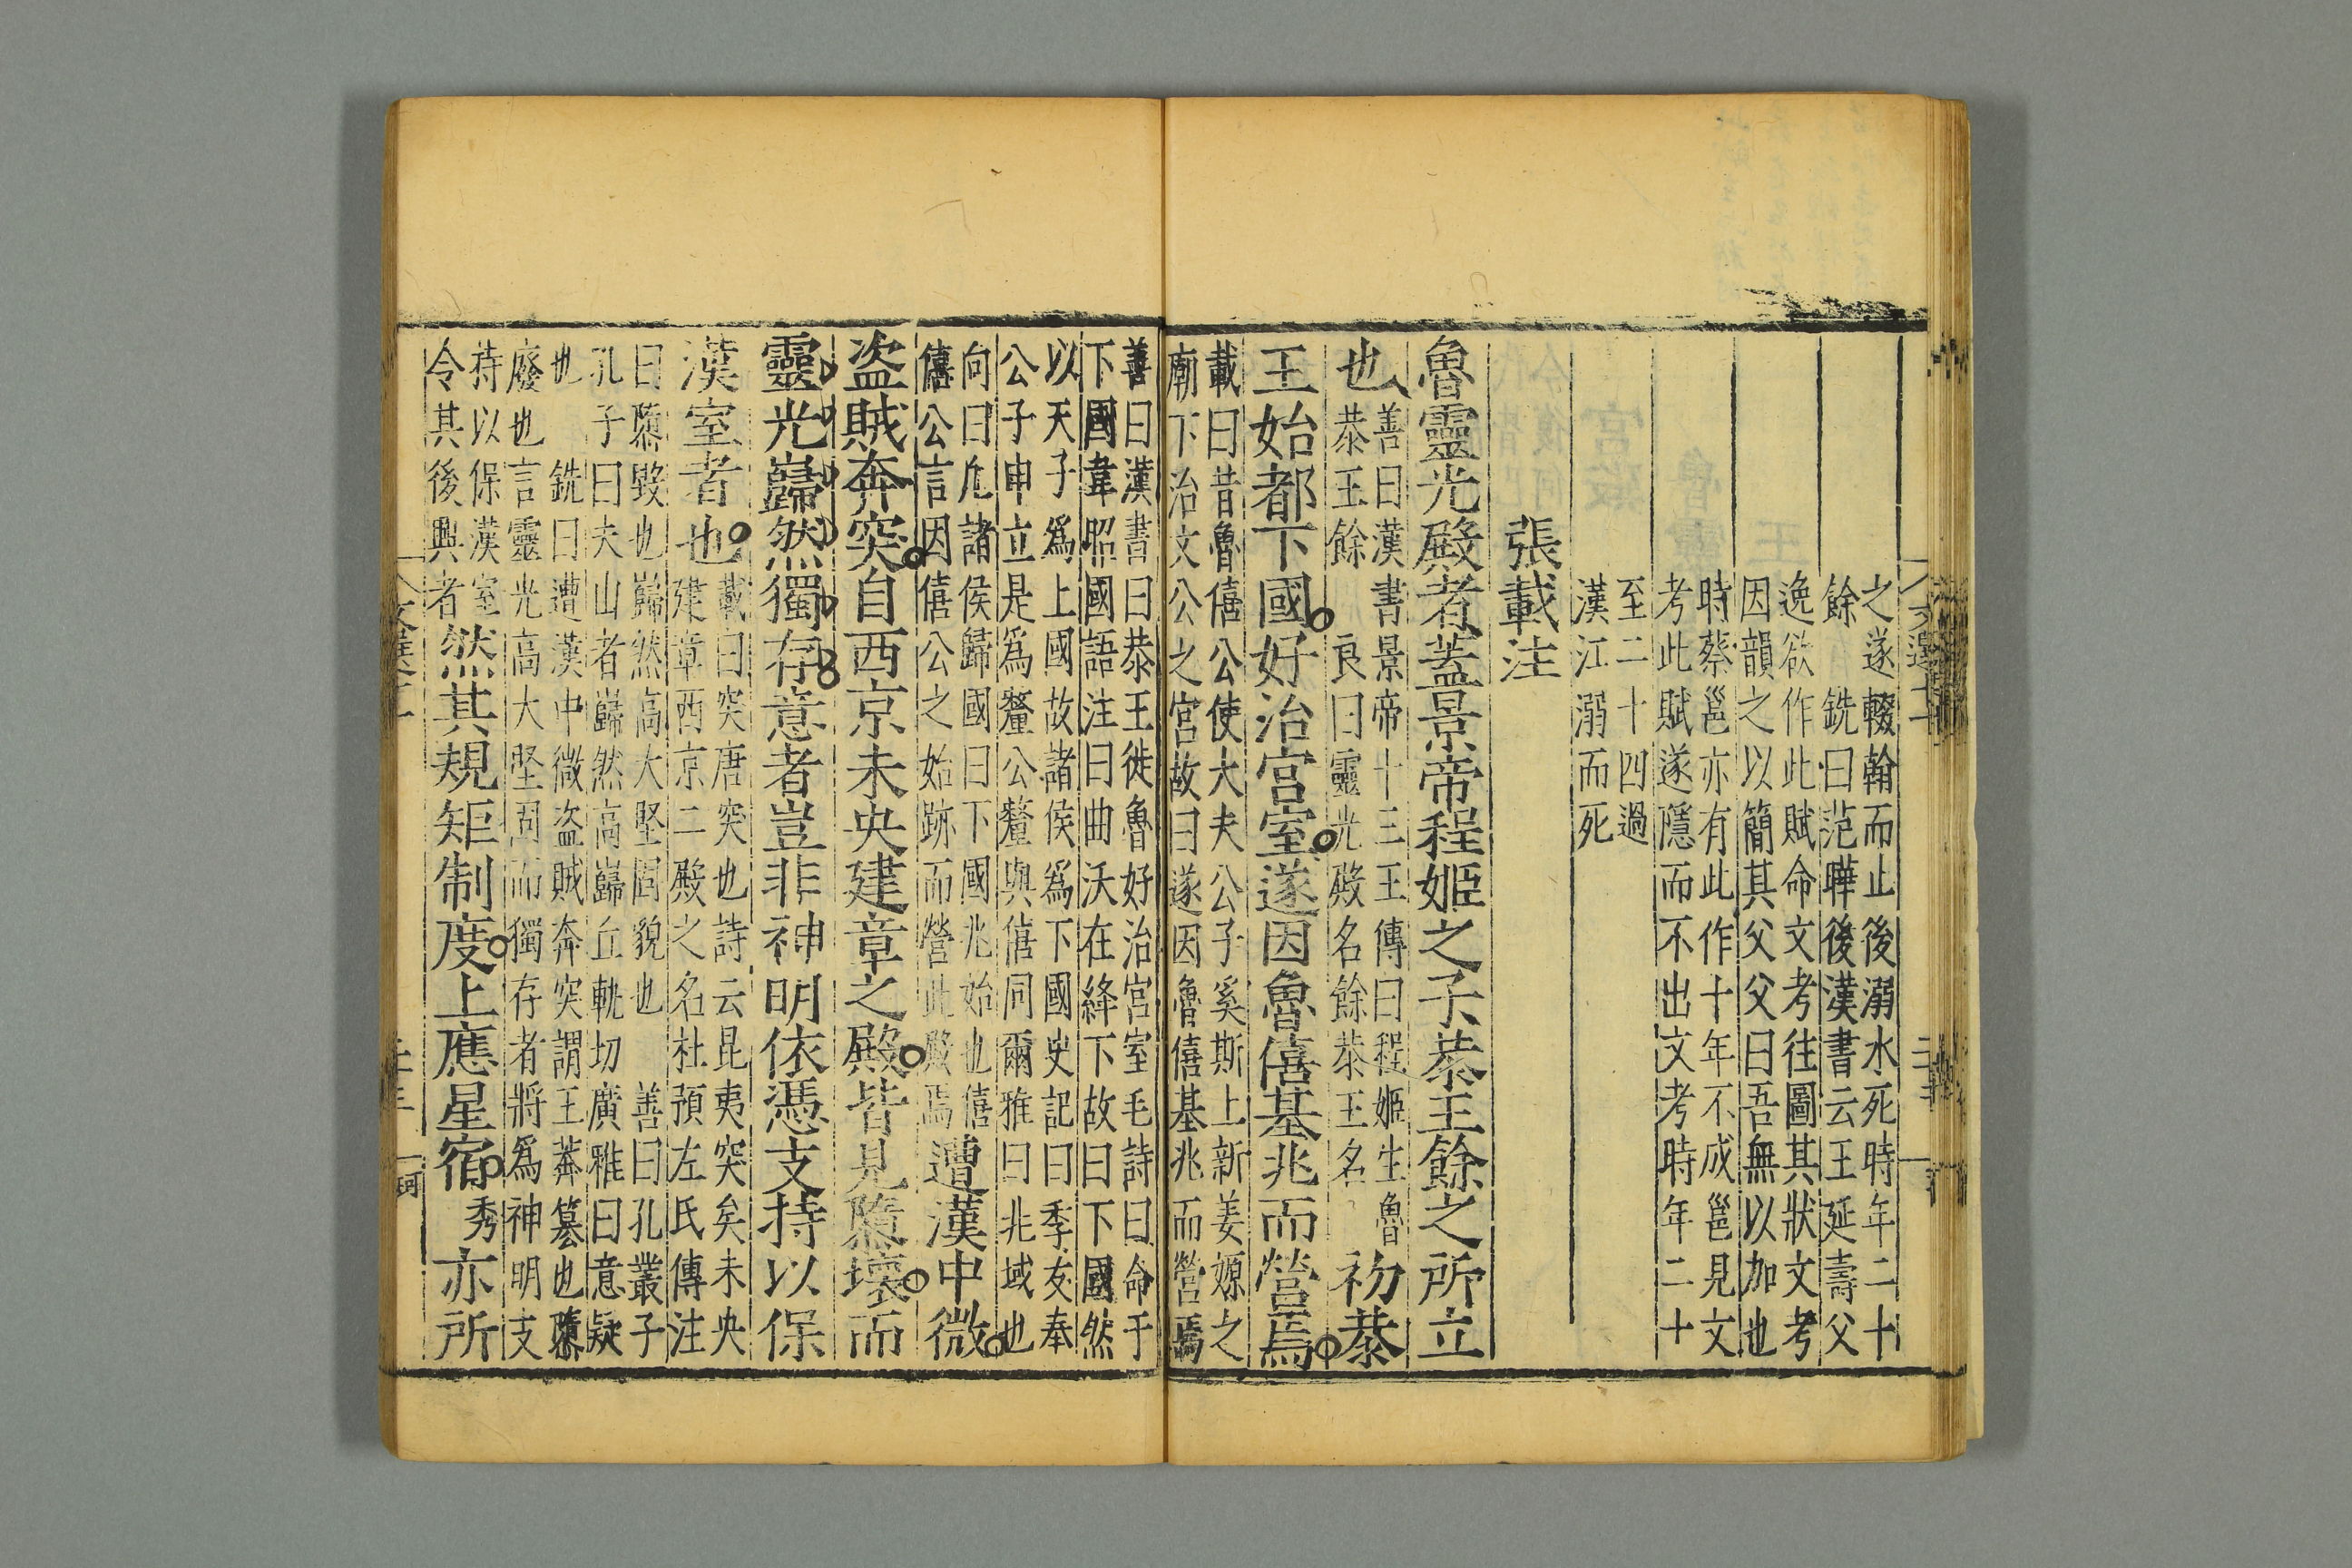 之遂輟翰而止後溺水死時年二十
餘　銑曰范曄後漢書云王延壽父
逸欲作此賦命文考往圖其狀文考
因韻之以簡其父父曰吾無以加也
時蔡邕亦有此作十年不成邕見文
考此賦遂隱而不出文考時年二十
至二十四過
漢江溺而死
張載注
魯靈光殿者蓋景帝程姬之子恭王餘之所立
也
善曰漢書景帝十三王傳曰程姬生魯
恭王餘　良曰靈光殿名餘恭王名
初恭
王始都下國好治宮室遂因魯僖基兆而營焉
載曰昔魯僖公使大夫公子奚斯上新姜嫄之
廟下治文公之宮故曰遂因魯僖基兆而營焉
善曰漢書曰恭王徙魯好治宮室毛詩曰命于
下國韋昭國語注曰曲沃在絳下故曰下國然
以天子爲上國故諸侯爲下國史記曰季友奉
公子申立是爲釐公釐與僖同爾雅曰兆域也
向曰凡諸侯歸國曰下國兆始也僖
僖公言因僖公之始跡而營此殿焉
遭漢中微
盗賊奔突自西京未央建章之殿皆見隳壞而
靈光巋然獨存意者豈非神明依憑支持以保
漢室者也
載曰突唐突也詩云昆夷突矣未央
建章西京二殿之名杜預左氏傳注
曰隳毀也巋然高大堅固貌也　善曰孔叢子
孔子曰夫山者巋然高巋丘軌切廣雅曰意疑
也　銑曰遭漢中微盗賊奔突謂王莽簒也隳
廢也言靈光高大堅固而獨存者將爲神明支
持以保漢室
令其後興者
然其規矩制度上應星宿
秀
亦所